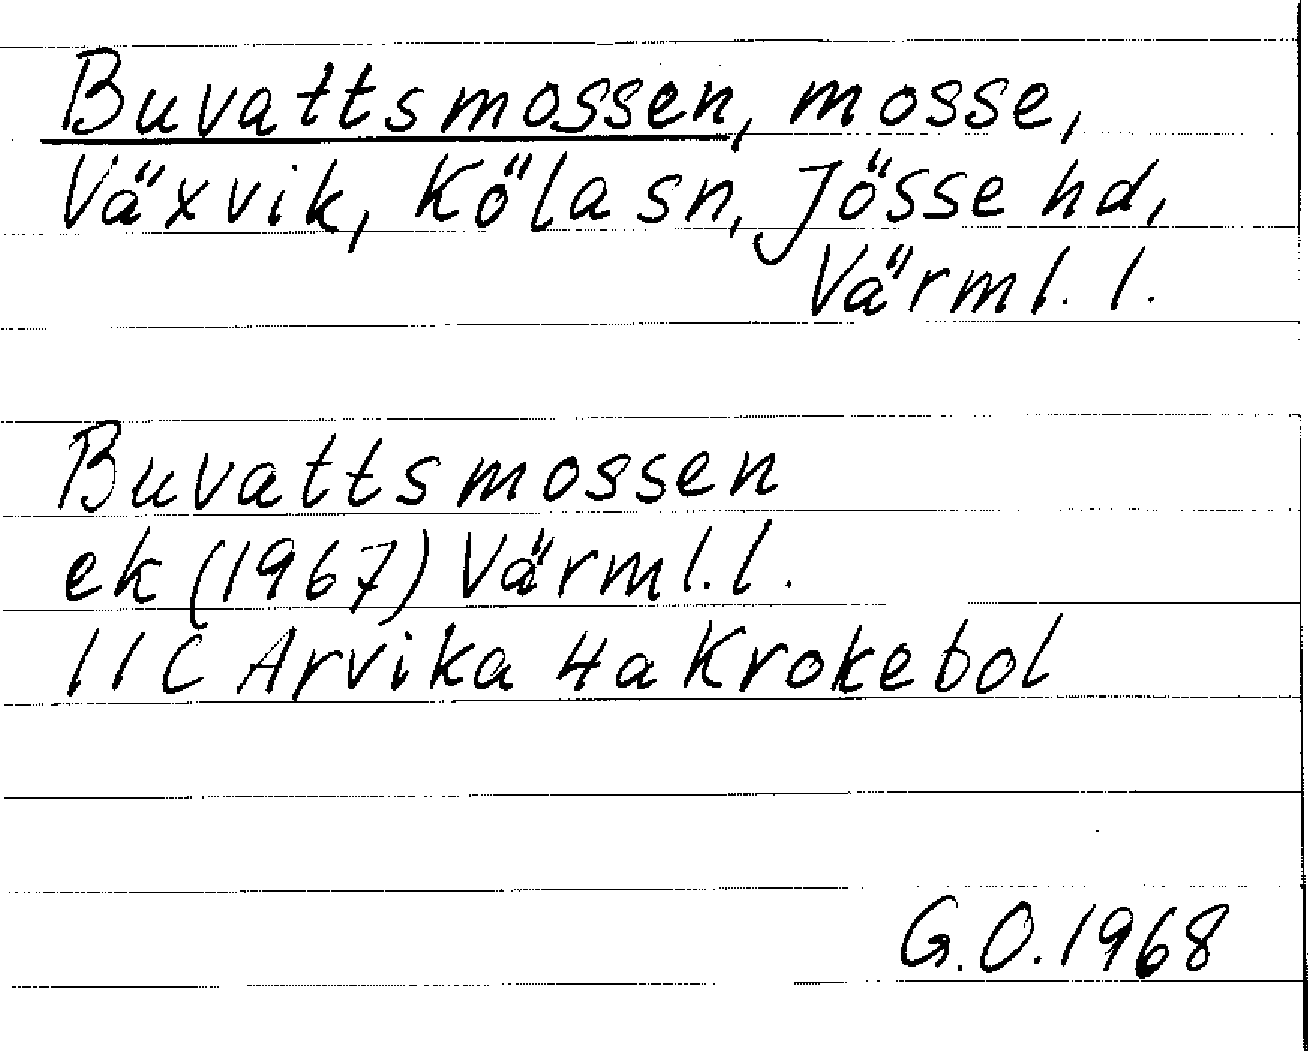 Buvattsmossen, mosse,
Växvik, Köla sn, Jösse hd,
Värml. l.
Buvattsmossen
ek (1967) Värml. l.
11C Arvika 4a Krokebol
G.O. 1968